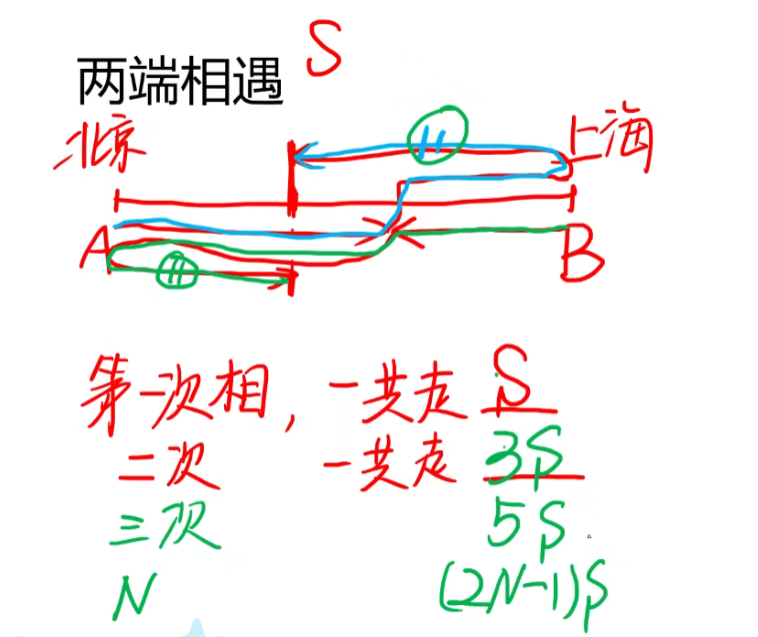 两端相遇 S
北京 上海
A B
第一次相,一共走 S
二次 一共走 3S
三次 5S.
N (2N-1)S